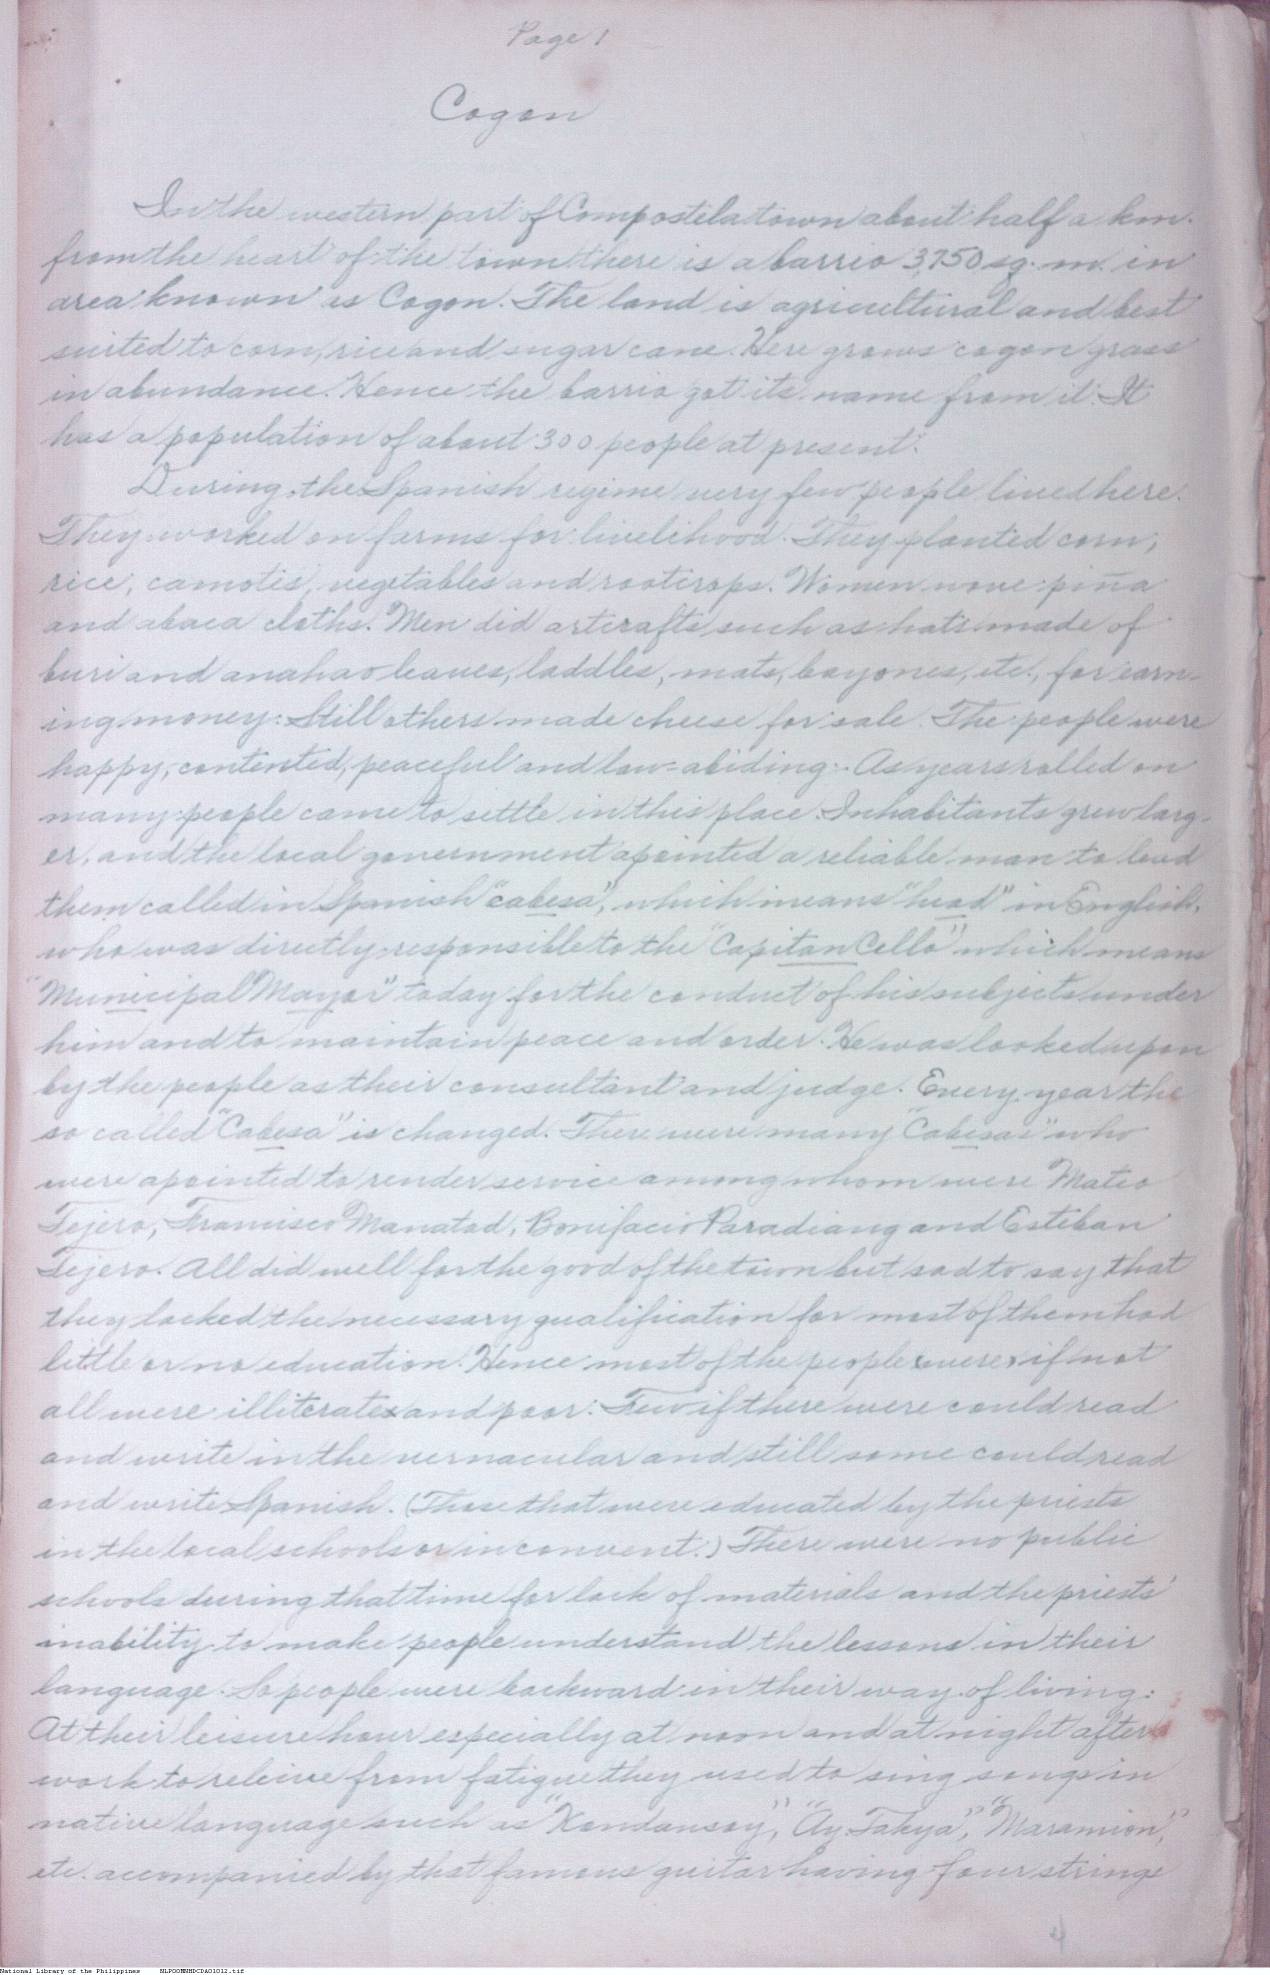 Page 1
Cogon
In the western part of Compostela town about half a km.
from the heart of the town there is a barrio 3,750 sq. m. in
area known as Cogon. The land is agricultural and best
suited to corn, rice and sugar cane. Here grows cogon grass
in abundance. Hence the barrio got its name from it. It
has a population of about 300 people at present.
During the Spanish regime very few people lived here.
They worked on farms for livelihood. They planted corn,
rice, camotes, vegetables and rootcrops. Women wove piña
and abaca cloths. Men did artcrafts such as hats made of
buri and anahao leaves, laddles, mats, bayones, etc., for earn-
ing money. Still others made cheese for sale. The people were
happy, contented, peaceful and law-abiding. As years rolled on
many people came to settle in this place. Inhabitants grew larg-
er, and the local government apointed a reliable man to lead
them called in Spanish "cabesa", which means "head" in English,
who was directly responsible to the "Capitan Cello" which means
"Municipal Mayor" today for the conduct of his subjects under
him and to maintain peace and order. He was looked upon
by the people as their consultant and judge. Every year the
so called "Cabesa" is changed. There were many "Cabesas" who
were apointed to render service among whom were Mateo
Tejero, Francisco Manatad, Bonifacio Paradiang and Esteban
Tejero. All did well for the good of the town but sad to say that
they lacked the necessary qualification for most of them had
little or no education. Hence most of the people were, if not
all were illiterates and poor. Few if there were could read
and write in the vernacular and still some could read
and write Spanish. (Those that were educated by the priests
in the local schools or in convent.) There were no public
schools during that time for lack of materials and the priests'
inability to make people understand the lessons in their
language. So people were backward in their way of living.
At their leisure hour especially at noon and at night after
work to releive from fatigue they used to sing songs in
native language such as "Kondansoy", "Ay Takya", "Maramion,"
etc. accompanied by that famous guitar having four strings
4
National Library of the Philippines NLPOOMNHDCDA01012.tif